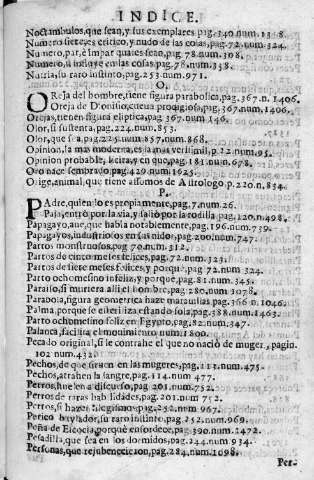 INDICE.
Noctambulos, que sean, y sus exemplares pag. 340. num. 1318.
Numero siete, es critico, y nudo de las cosas, pag. 72. num. 324.
Numero, par, è impar quales sean, pag. 78. num. 308.
Numero, si incluye en las cosas, pag. 78. num. 338.
Nutria, su raro instinto, pag. 253. num. 971.
O.
OReja del hombre, tiene figura parabolica, pag. 367. n. 1406.
Oreja de Dionisio, cueva prodigiosa, pag. 367. num. 1406.
Orejas, tienen figura eliptica, pag. 367. num. 146.
Olor, si sustenta, pag. 224. num. 853.
Olor, que sea, pag. 225. num. 857. num. 868.
Opinion, la mas moderna, es la mas verisimil, p. 12. num. 95.
Opinion probable, licita, y en que, pag. 181. num. 678.
Oro nace sembrado pag. 429. num. 1625.
Orige, animal, que tiene assomos de Astrologo p. 220. n. 854.
P.
PAdre, quien lo es propiamente, pag. 7. num. 26.
Paja, entrò por la via, y saliò por la rodilla pag. 120. n. 498.
Papagayo, ave, que habla notablemente, pag. 196. num. 739.
Papagayos, industriosos en las nidos, pag. 200. num. 747.
Partos monstruosos, pag. 70. num. 312.
Partos de cinco meses felices, pag. 72. num. 323.
Partos de siete meses felices, y porquè, pag. 72. num. 324.
Parto ochomesino infeliz, y porquè, pag. 81. num. 345.
Paraiso, si muriera alli el hombre, pag. 280. num. 1078.
Parabola, figura geometrica haze maravillas, pag. 366. n. 1046.
Palma, porque se esteriliza estando sola, pag. 388. num. 1463.
Parto ochomesino feliz en Egypto, pag. 82. num. 347.
Palanca, facilita el movimiento num. 1800.
Pecado original, si le contrahe el que no naciò de muger, pagin.
102 num. 432.
Pechos, de que sirven en las mugeres, pag. 113. num. 475.
Pechos, atrahen la sangre, pag. 114. num. 477.
Perros, huelen a discurso, pag. 201. num. 752.
Perros de raras habilidades, pag. 201. num. 752.
Perros, si hazen silogismos, pag. 252. num. 967.
Perico baylador, su raro instinto, pag. 252. num. 969.
Peña de Escocia, porquè ensordece, pag. 390. num. 1472.
Pesadilla, que sea en los dormidos, pag. 244. num. 934.
Personas, que rejubenecieron, pag. 284. num. 1098.
Per-